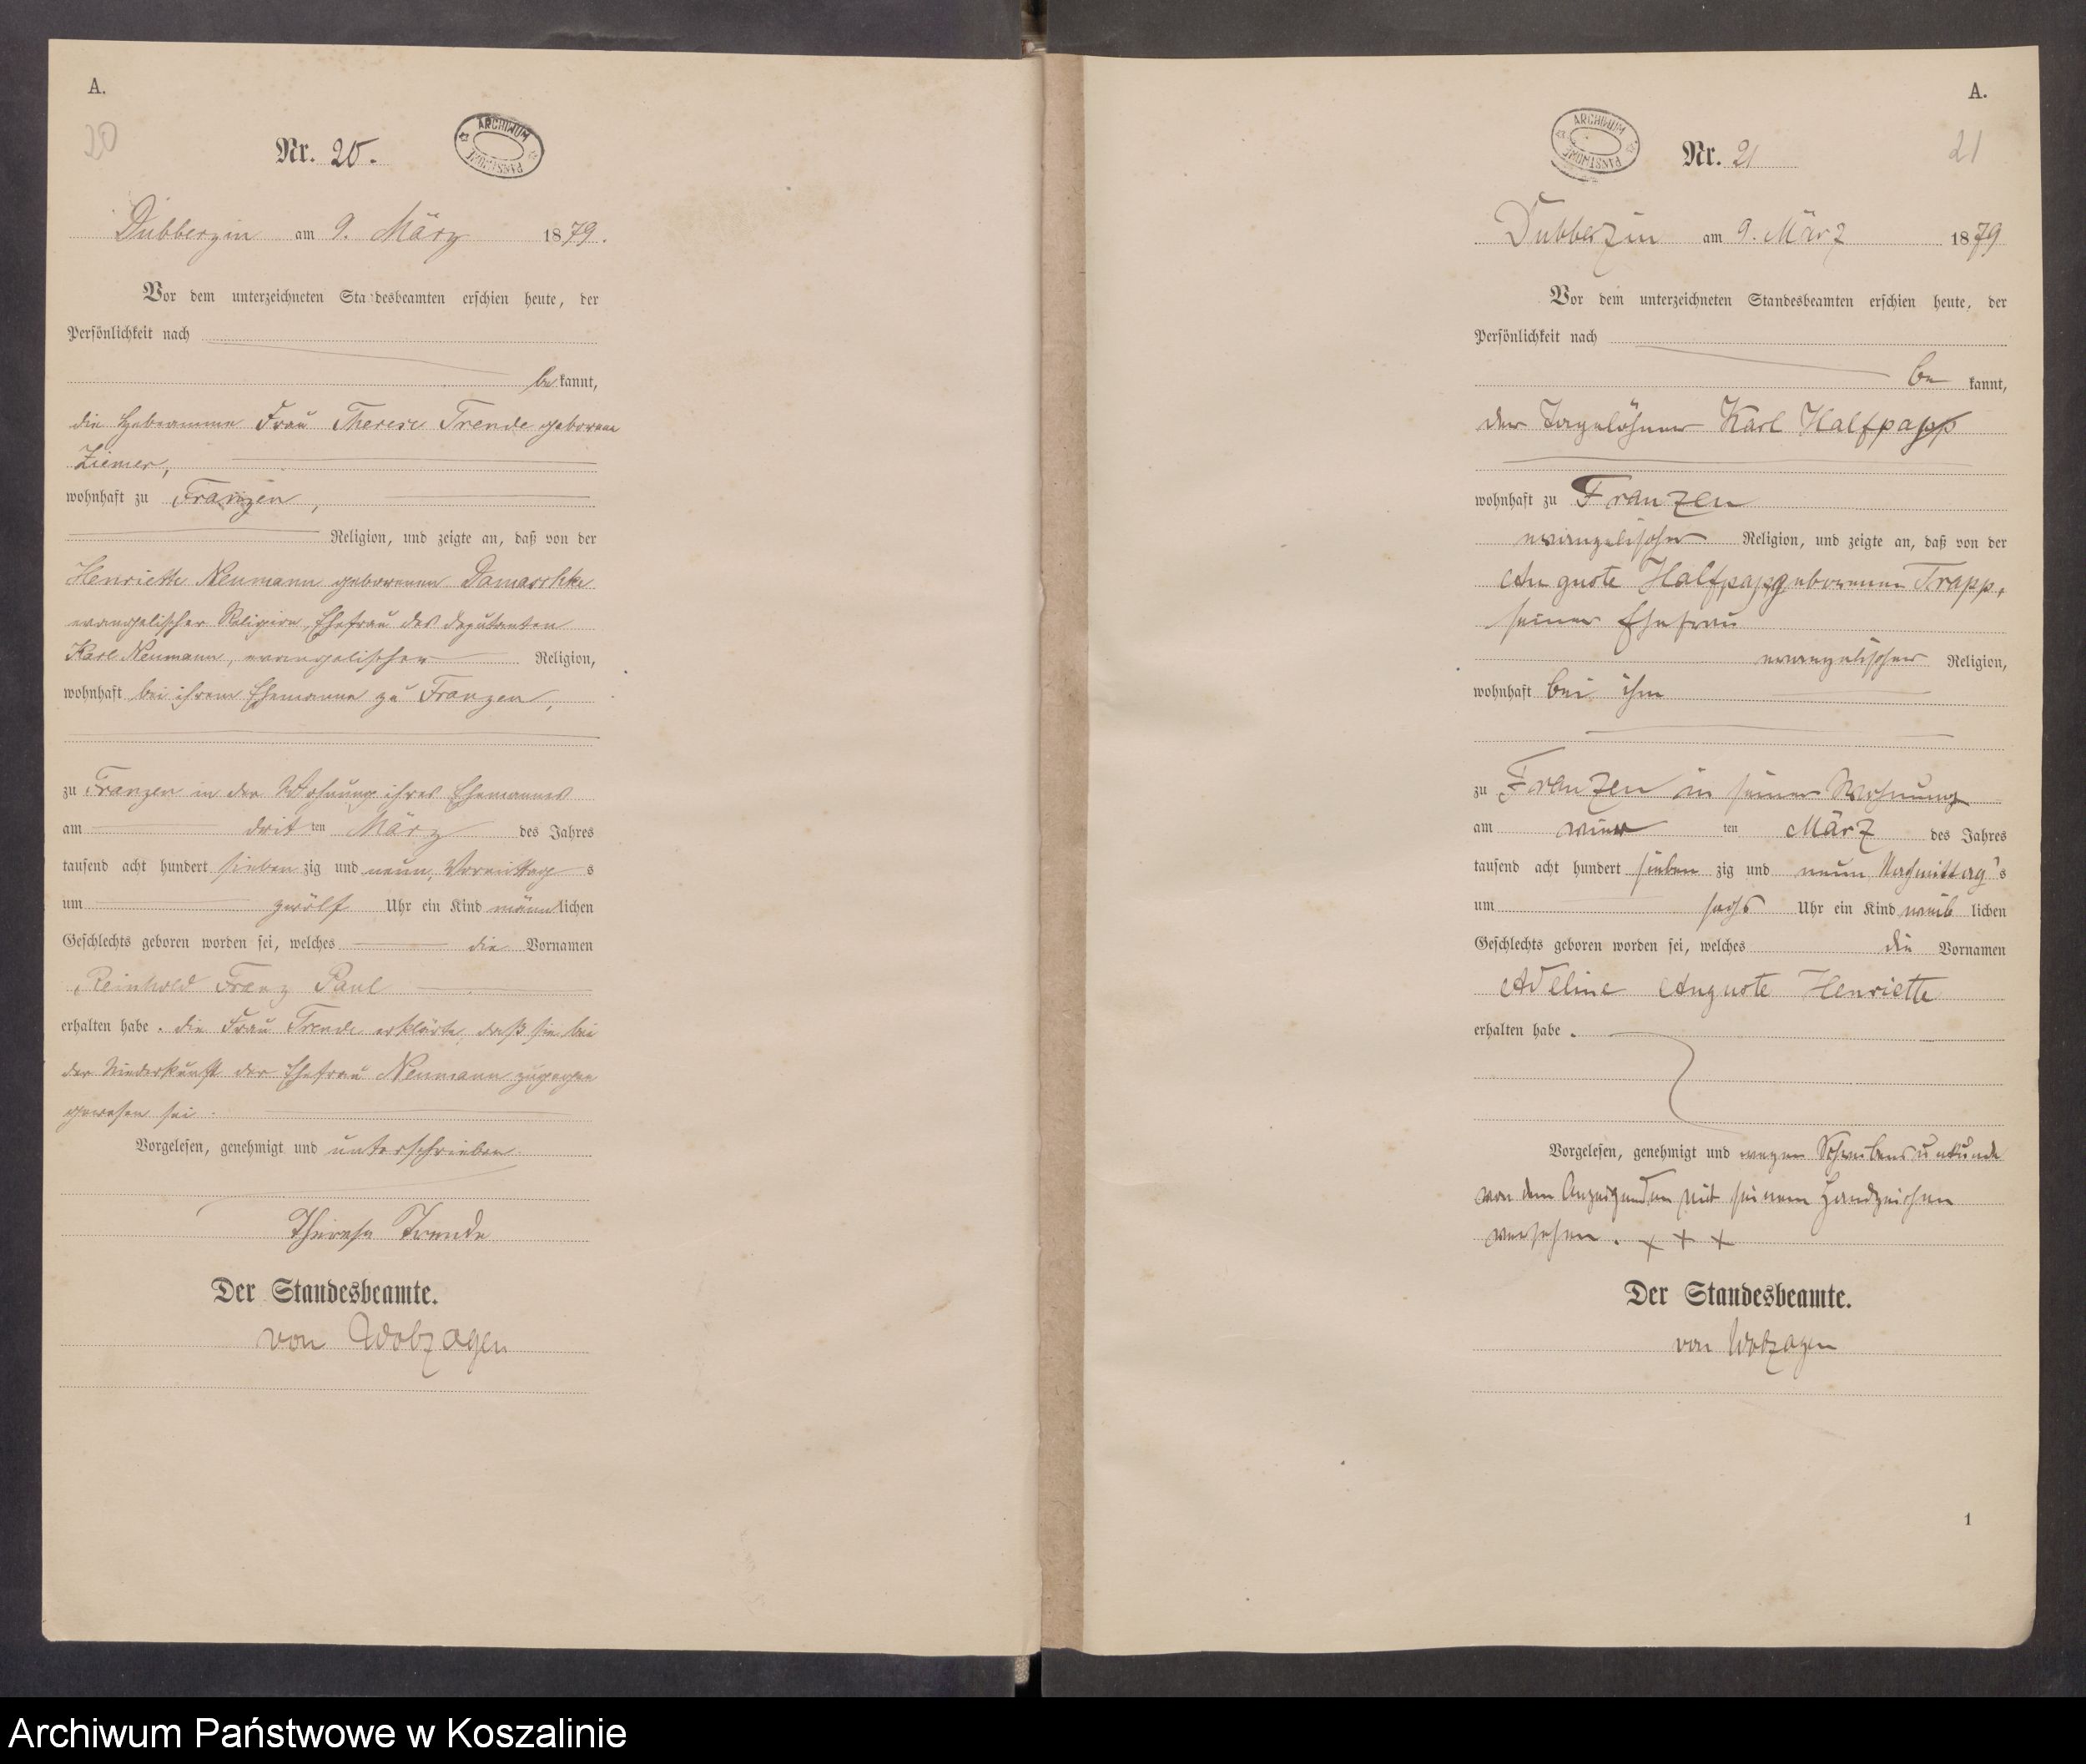 A.
20
Nr. 20.
ARCHIWUM PAŃSTWOWE
Dubberzin am 9. März 1879.
Vor dem unterzeichneten Sta desbeamten erschien heute, der
Persönlichkeit nach
be kannt,
die Hebeamme Frau Therese Trende geborene
Ziemer,
wohnhaft zu Franzen,
Religion, und zeigte an, daß von der
Henriette Neumann geborenen Damaschke
evangelischer Religion, Ehefrau des Deputanten
Karl Neumann, evangelischer Religion,
wohnhaft bei ihrem Ehemanne zu Franzen,
zu Franzen in der Wohnung ihres Ehemannes
am dritten März des Jahres
tausend acht hundert sieben zig und neun, Vormittag s
um zwölf Uhr ein Kind männlichen
Geschlechts geboren worden sei, welches die Vornamen
Reinhold Franz Paul
erhalten habe. die Frau Trende erklärte, daß sie bei
der Niederkunft der Ehefrau Neumann zugegen
gewesen sei.
Vorgelesen, genehmigt und unterschrieben
Therese Trende
Der Standesbeamte.
von Wobzagen
A.
21
Nr. 21
ARCHIWUM PAŃSTWOWE
Dubberzin am 9. März 1879
Vor dem unterzeichneten Standesbeamten erschien heute, der
Persönlichkeit nach
be kannt,
der Tagelöhner Karl Halfpapp
wohnhaft zu Franzen
evangelischer Religion, und zeigte an, daß von der
Auguste Halfpapp geborenen Trapp,
seiner Ehefrau
evangelischer Religion,
wohnhaft bei ihm
zu Franzen in seiner Wohnung
am ten März des Jahres
tausend acht hundert sieben zig und neun Nachmittag's
um sechs Uhr ein Kind weib lichen
Geschlechts geboren worden sei, welches die Vornamen
Adeline Auguste Henriette
erhalten habe.
Vorgelesen, genehmigt und wegen Schreibensunkunde
von dem Anzeigenden mit seinem Handzeichen
versehen. + + +
Der Standesbeamte.
von Wobzagen
1
Archiwum Państwowe w Koszalinie